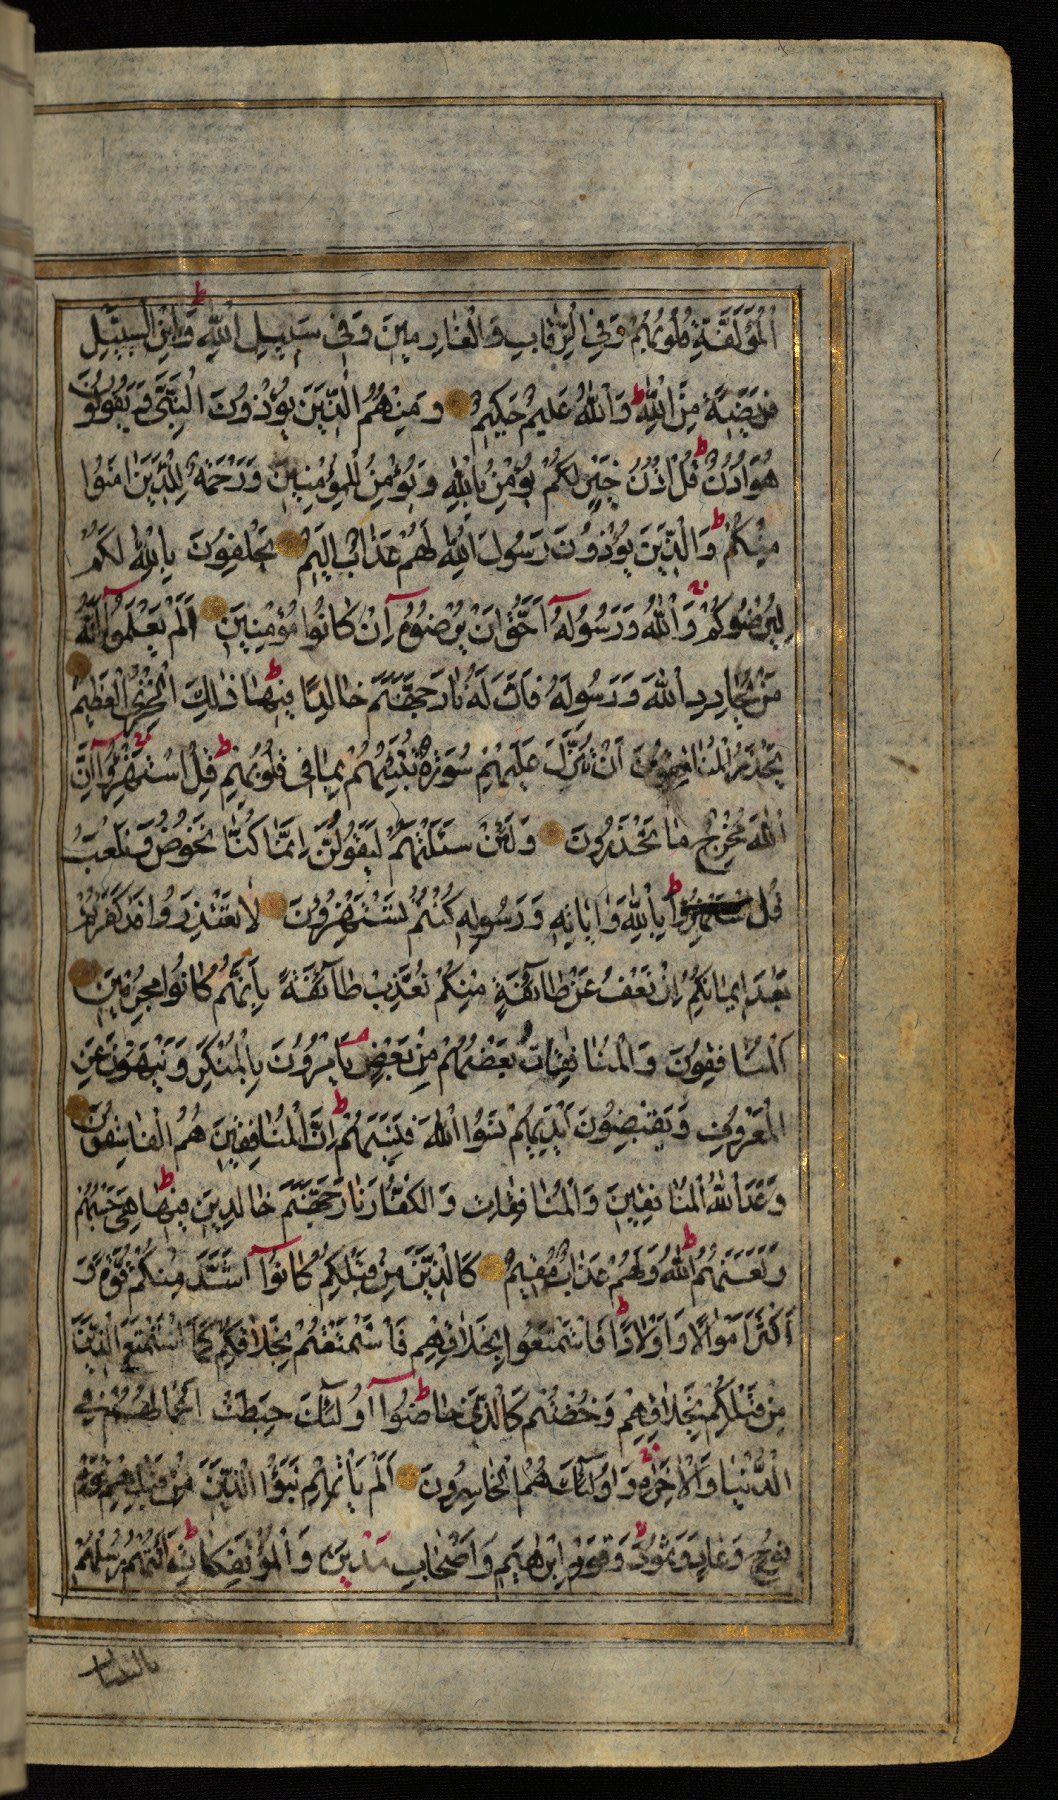 الْمُؤَلَّفَةِ قُلُوبُهُمْ وَفِي الرِّقَابِ وَالْغَارِمِينَ وَفِي سَبِيلِ اللَّهِ وَابْنِ السَّبِيلِ
فَرِيضَةً مِنَ اللَّهِ وَاللَّهُ عَلِيمٌ حَكِيمٌ وَمِنْهُمُ الَّذِينَ يُؤْذُونَ النَّبِيَّ وَيَقُولُونَ
هُوَ أُذُنٌ قُلْ أُذُنُ خَيْرٍ لَكُمْ يُؤْمِنُ بِاللَّهِ وَيُؤْمِنُ لِلْمُؤْمِنِينَ وَرَحْمَةٌ لِلَّذِينَ آمَنُوا
مِنْكُمْ وَالَّذِينَ يُؤْذُونَ رَسُولَ اللَّهِ لَهُمْ عَذَابٌ أَلِيمٌ يَحْلِفُونَ بِاللَّهِ لَكُمْ
لِيُرْضُوكُمْ وَاللَّهُ وَرَسُولُهُ أَحَقُّ أَنْ يُرْضُوهُ إِنْ كَانُوا مُؤْمِنِينَ أَلَمْ يَعْلَمُوا أَنَّهُ
مَنْ يُحَادِدِ اللَّهَ وَرَسُولَهُ فَأَنَّ لَهُ نَارَ جَهَنَّمَ خَالِدًا فِيهَا ذَلِكَ الْخِزْيُ الْعَظِيمُ
يَحْذَرُ الْمُنَافِقُونَ أَنْ تُنَزَّلَ عَلَيْهِمْ سُورَةٌ تُنَبِّئُهُمْ بِمَا فِي قُلُوبِهِمْ قُلِ اسْتَهْزِؤُا إِنَّ
اللَّهَ مُخْرِجٌ مَا تَحْذَرُونَ وَلَئِنْ سَئَلْتَهُمْ لَيَقُولُنَّ إِنَّمَا كُنَّا نَخُوضُ وَنَلْعَبُ
قُلْ أَبِاللَّهِ وَآيَاتِهِ وَرَسُولِهِ كُنْتُمْ تَسْتَهْزِؤُنَ لَا تَعْتَذِرُوا قَدْ كَفَرْتُمْ
بَعْدَ إِيمَانِكُمْ إِنْ نَعْفُ عَنْ طَائِفَةٍ مِنْكُمْ نُعَذِّبْ طَائِفَةً بِأَنَّهُمْ كَانُوا مُجْرِمِينَ
الْمُنَافِقُونَ وَالْمُنَافِقَاتُ بَعْضُهُمْ مِنْ بَعْضٍ يَأْمُرُونَ بِالْمُنْكَرِ وَيَنْهَوْنَ عَنِ
الْمَعْرُوفِ وَيَقْبِضُونَ أَيْدِيَهُمْ نَسُوا اللَّهَ فَنَسِيَهُمْ إِنَّ الْمُنَافِقِينَ هُمُ الْفَاسِقُونَ
وَعَدَ اللَّهُ الْمُنَافِقِينَ وَالْمُنَافِقَاتِ وَالْكُفَّارَ نَارَ جَهَنَّمَ خَالِدِينَ فِيهَا هِيَ حَسْبُهُمْ
وَلَعَنَهُمُ اللَّهُ وَلَهُمْ عَذَابٌ مُقِيمٌ كَالَّذِينَ مِنْ قَبْلِكُمْ كَانُوا أَشَدَّ مِنْكُمْ قُوَّةً وَ
أَكْثَرَ أَمْوَالًا وَأَوْلَادًا فَاسْتَمْتَعُوا بِخَلَاقِهِمْ فَاسْتَمْتَعْتُمْ بِخَلَاقِكُمْ كَمَا اسْتَمْتَعَ الَّذِينَ
مِنْ قَبْلِكُمْ بِخَلَاقِهِمْ وَخُضْتُمْ كَالَّذِي خَاضُوا أُولَئِكَ حَبِطَتْ أَعْمَالُهُمْ فِي
الدُّنْيَا وَالْآخِرَةِ وَأُولَئِكَ هُمُ الْخَاسِرُونَ أَلَمْ يَأْتِهِمْ نَبَؤُا الَّذِينَ مِنْ قَبْلِهِمْ قَوْمِ
نُوحٍ وَعَادٍ وَثَمُودَ وَقَوْمِ إِبْرَهِيمَ وَأَصْحَابِ مَدْيَنَ وَالْمُؤْتَفِكَاتِ أَتَتْهُمْ رُسُلُهُمْ
بالبينات